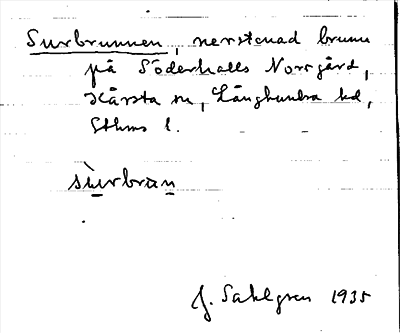 Surbrunnen, nerstenad brunn
på Söderhalls Norrgård,
Kårsta sn, Långhundra hd,
Sthms l.
sùrbrun
J. Sahlgren 1935